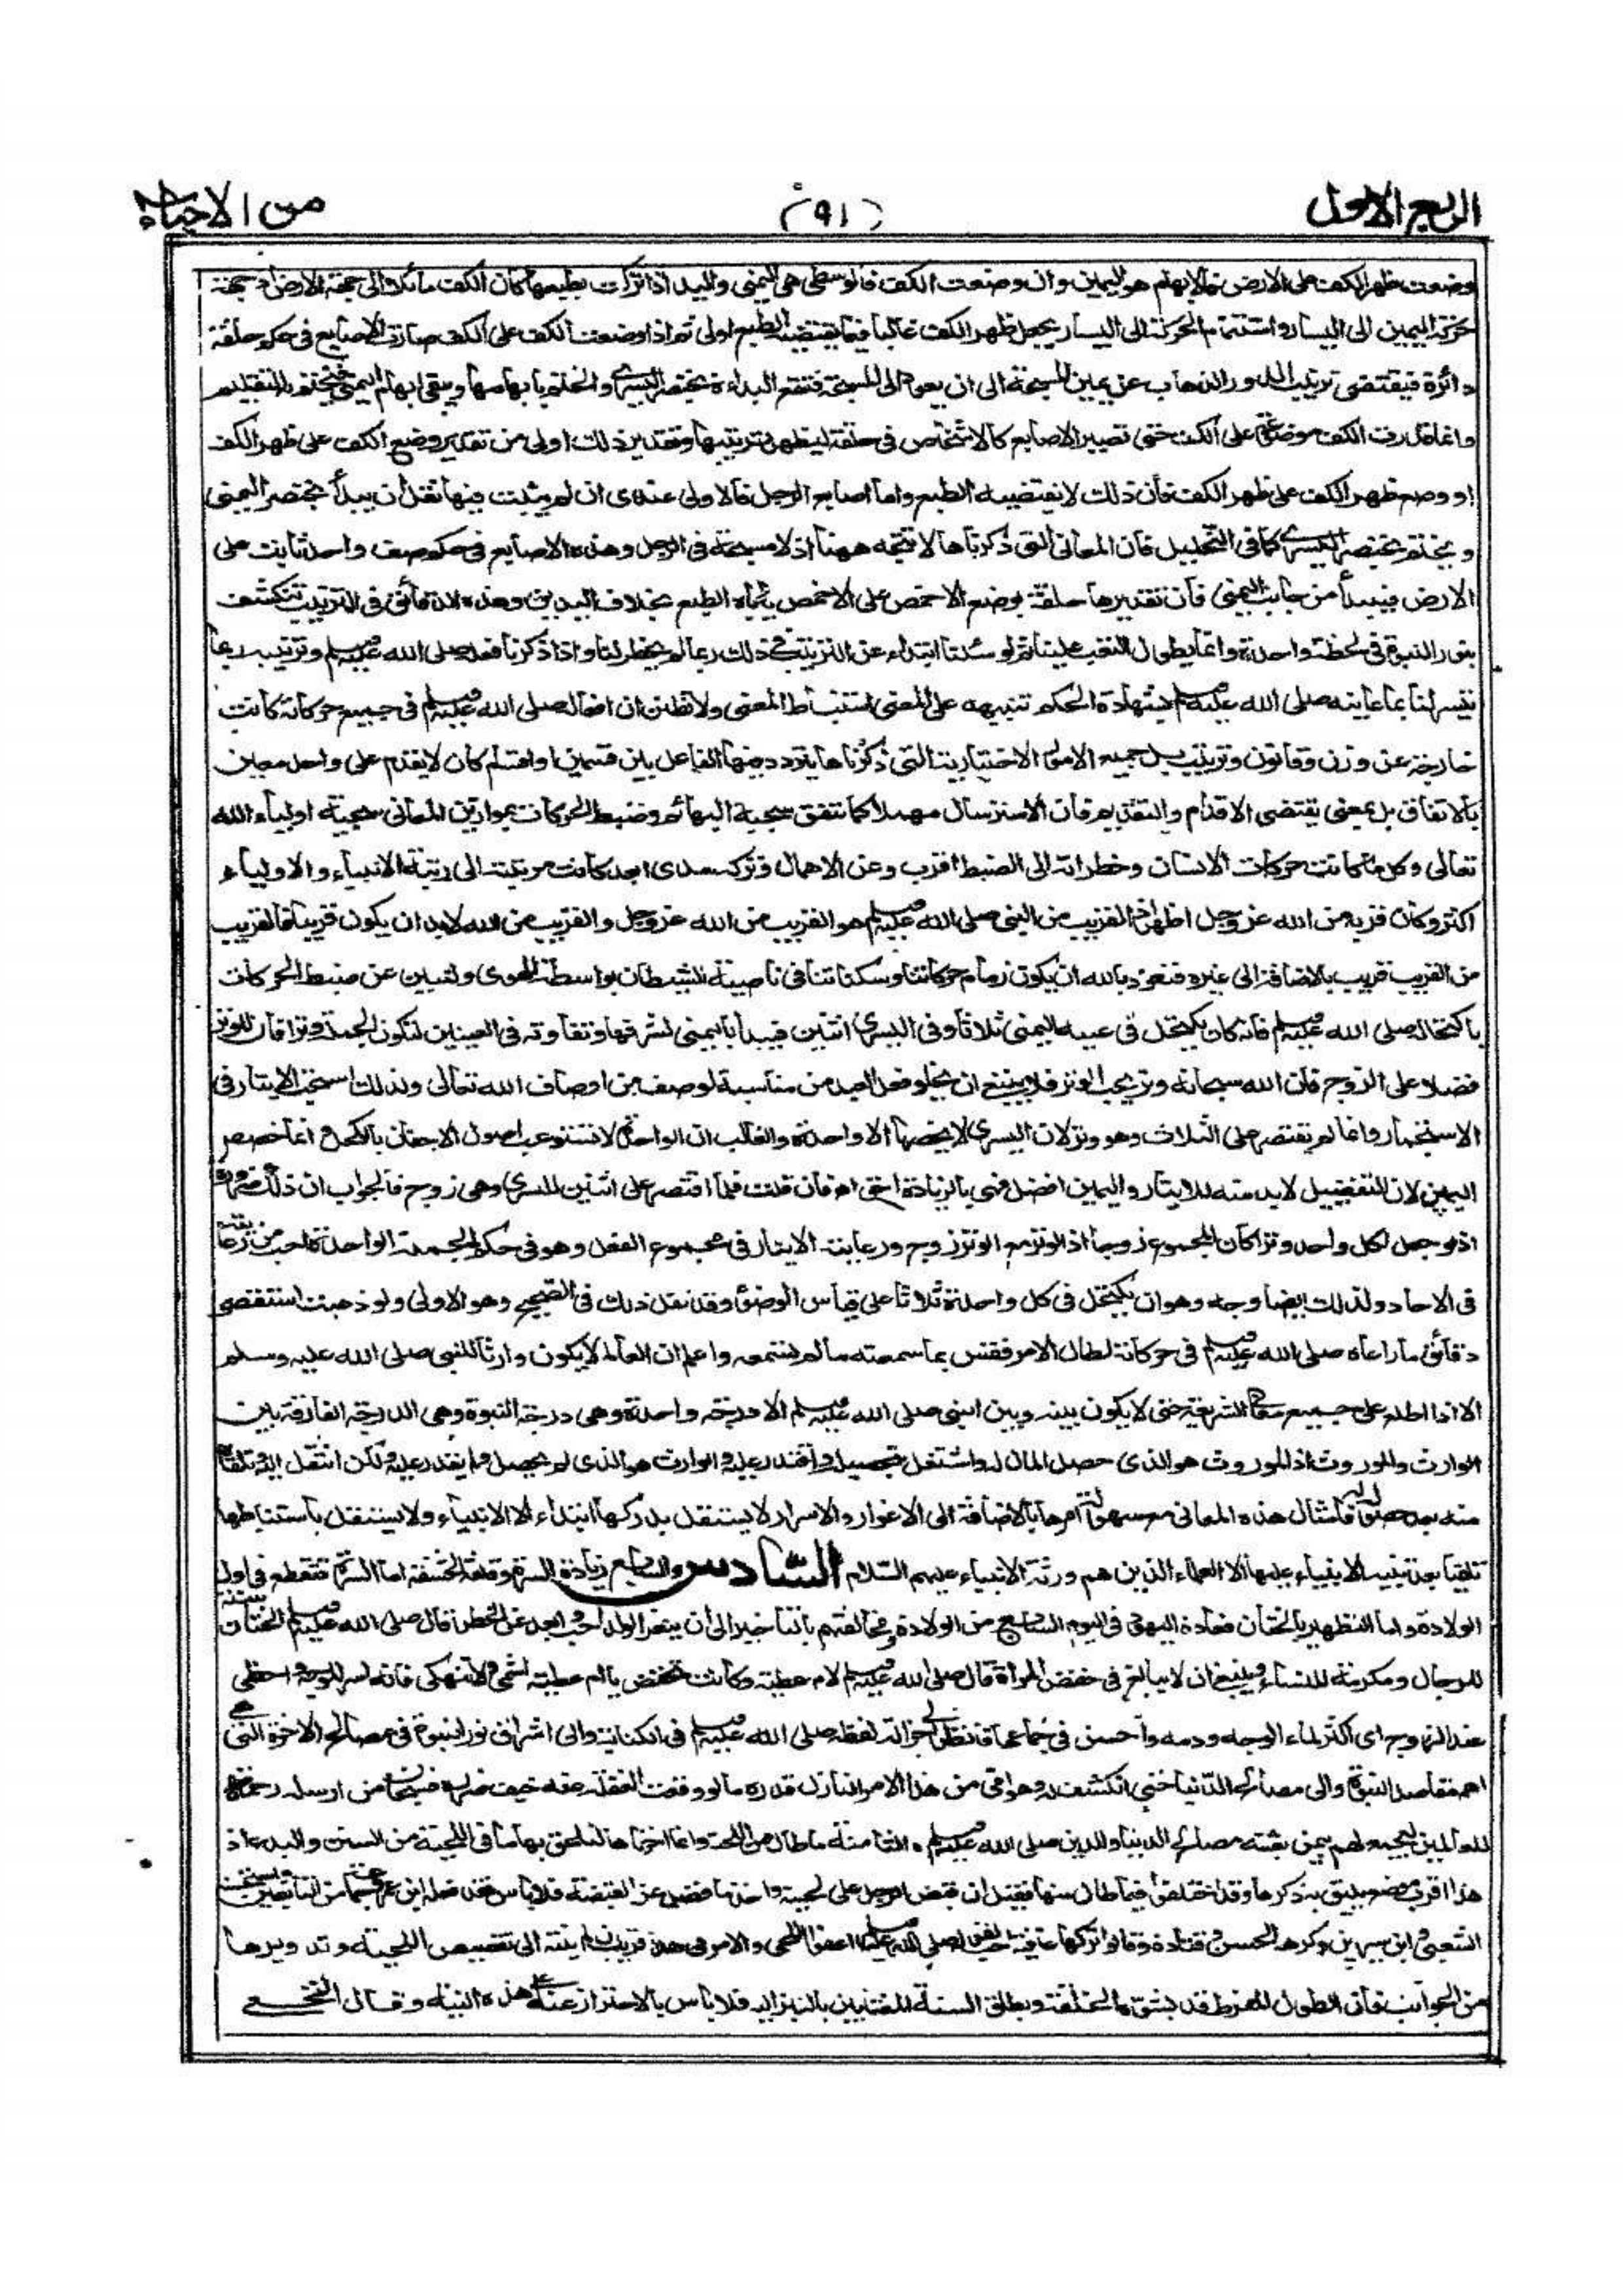 الربع الاول
(٩١)
من الاحياء
وضعت ظهر الكف على الارض فالابهام هو اليمين وان وضعت الكف فالوسطى هي اليمنى واليد اذا تركت بطبعها كان الكف مائلا الى جهة الارض اذ جهة
حركة اليمين الى اليسار واستتمام الحركة الى اليسار يجعل ظهر الكف عاليا فما يقتضيه الطبع اولى ثم اذا وضعت الكف على الكف صارت الاصابع في حكم حلقة
دائرة فيقتضى ترتيب الدور الذهاب عن يمين المسبحة الى ان يعود الى المسبحة فتقع البداءة بخنصر اليسرى والختم بابهامها ويبقى ابهام اليمنى فيختم به التقليم
وانما قدرت الكف موضوعة على الكف حتى تصير الاصابع كالاشخاص في حلقة ليظهر ترتيبها وتقدير ذلك اولى من تقدير وضع الكف على ظهر الكف
او وضع ظهر الكف على ظهر الكف فان ذلك لا يقتضيه الطبع واما اصابع الرجل فالاولى عندى ان لم يثبت فيها نقل ان يبدأ بخنصر اليمنى
و يختم بخنصر اليسرى كما في التخليل فان المعانى التى ذكرناها لا تتجه ههنا اذ لا مسبحة في الرجل وهذه الاصابع في حكم صف واحد ثابت على
الارض فيبدأ من جانب اليمنى فان تقديرها حلقة بوضع الاخمص على الاخمص ياباه الطبع بخلاف اليدين وهذه الدقائق في الترتيب تنكشف
بنور النبوة في لحظة واحدة وانما يطول التعب علينا ثم لو سئلنا ابتداء عن الترتيب في ذلك ربما لم يخطر لنا واذا ذكرنا فعله صلى الله عليه وسلم وترتيبه ربما
تيسر لنا بما عاينه صلى الله عليه وسلم بشهادة الحكم تنبيهه على المعنى استنباط المعنى ولا تظنن ان افعاله صلى الله عليه وسلم في جميع حركاته كانت
خارجة عن وزن وقانون وترتيب بل جميع الامور الاختيارية التى ذكرناها يتردد فيها الفاعل بين قسمين او اقسام كان لا يقدم على واحد معين
بالاتفاق بل بمعنى يقتضى الاقدام والتقديم فان الاسترسال مهملا كما يتفق سجية البهائم وضبط الحركات بموازين المعانى سجية اولياء الله
تعالى وكل ما كانت حركات الانسان وخطراته الى الضبط اقرب وعن الاهمال وتركه سدى ابعد كانت مرتبته الى رتبة الانبياء والاولياء
اكثر وكان قربه من الله عز وجل اظهر اذ القريب من النبى صلى الله عليه وسلم هو القريب من الله عز وجل والقريب من الله لابد ان يكون قريبا فالقريب
من القريب قريب بالاضافة الى غيره فنعوذ بالله ان يكون زمام حركاتنا وسكناتنا في ناصية الشيطان بواسطة الهوى ولتبين عن ضبط الحركات
باكتحاله صلى الله عليه وسلم فانه كان يكتحل في عينه اليمنى ثلاثا وفي اليسرى اثنين فيبدأ باليمنى لشرفها وتفاوته في العينين لتكون الجملة وترا فان للوتر
فضلا على الزوج فان الله سبحانه وتر يحب الوتر فلا ينبغى ان يخلو فعل العبد من مناسبة لوصف من اوصاف الله تعالى ولذلك استحب الايتار في
الاستجمار وانما لم يقتصر على الثلاث وهو وتر لان اليسرى لا يخصها الا واحدة والغالب ان الواحدة لا تستوعب اصول الاجفان بالكحل و انما خصص
اليمين لان التفضيل لابد منه للايتار واليمين افضل فهى بالزيادة احق فان قلت فلم اقتصر على اثنين لليسرى وهى زوج فالجواب ان ذلك ضرورة
اذ لو جعل لكل واحد وترا كان المجموع زوجا اذ الوتر مع الوتر زوج ورعاية الايتار في مجموع الفعل وهو في حكم الجملة الواحدة احب من رعايته
في الاحاد ولذلك ايضا وجه وهو ان يكتحل في كل واحدة ثلاثا على قياس الوضوء وقد نقل ذلك في الصحيح وهو الاولى ولو ذهبت استقصى
دقائق ما راعاه صلى الله عليه وسلم في حركاته لطال الامر فقس بما سمعته ما لم تسمعه واعلم ان العالم لا يكون وارثا للنبى صلى الله عليه وسلم
الا اذا اطلع على جميع معانى الشريعة حتى لا يكون بينه وبين النبى صلى الله عليه وسلم الا درجة واحدة وهى درجة النبوة وهى الدرجة الفارقة بين
الوارث والموروث اذ الموروث هو الذى حصل المال له واشتغل بتحصيله واقتدر عليه والوارث هو الذى لم يحصل ولم يقدر عليه ولكن انتقل اليه وتلقاه
منه بعد حصوله له فامثال هذه المعانى مع سهولة امرها بالاضافة الى الاغوار والاسرار لا يستقل بدركها ابتداء الا الانبياء ولا يستقل باستنباطها
تلقيا بعد تنبيه الانبياء عليها الا العلماء الذين هم ورثة الانبياء عليهم السلام السادس والسابع زيادة السرة وقلفة الحشفة اما السرة فتقطع في اول
الولادة واما التطهير بالختان فعادة اليهود في اليوم السابع من الولادة ومخالفتهم بالتاخير الى ان يثغر الولد احب وابعد عن الخطر قال صلى الله عليه وسلم الختان سنة
للرجال ومكرمة للنساء وينبغى ان لا يبالغ في خفض المرأة قال صلى الله عليه وسلم لام عطية وكانت تخفض يا ام عطية اشمى ولا تنهكى فانه اسرى للوجه واحظى
عند الزوج اى اكثر لماء الوجه ودمه واحسن في جماعها فانظر الى جزالة لفظه صلى الله عليه وسلم في الكناية والى اشراق نور النبوة من مصالح الاخرة التى هى
اهم مقاصد النبوة الى مصالح الدنيا حتى انكشف له وهو امى من هذا الامر النازل قدره ما لو وقعت الغفلة عنه خيف ضرره فسبحان من ارسله رحمة
للعالمين ليجمع لهم بيمن بعثته مصالح الدنيا والدين صلى الله عليه وسلم الثامنة ما طال من اللحية وانما اخرناها لنلحق بها ما في اللحية من السنن والبدع اذ
هذا اقرب موضع يليق به ذكرها وقد اختلفوا فيما طال منها فقيل ان قبض الرجل على لحيته واخذ ما فضل عن القبضة فلا باس فقد فعله ابن عمر وجماعة من التابعين واستحسنه
الشعبى وابن سيرين وكرهه الحسن وقتادة وقالوا تركها عافية احب لقوله صلى الله عليه وسلم اعفوا اللحى والامر في هذا قريب ان لم ينته الى تقصيص اللحية وتدويرها
من الجوانب فان الطول المفرط قد يشوه الخلقة ويطلق السنة المغتابين بالنبز اليه فلا باس بالاحتراز عنه على هذه النية وقال النخعى